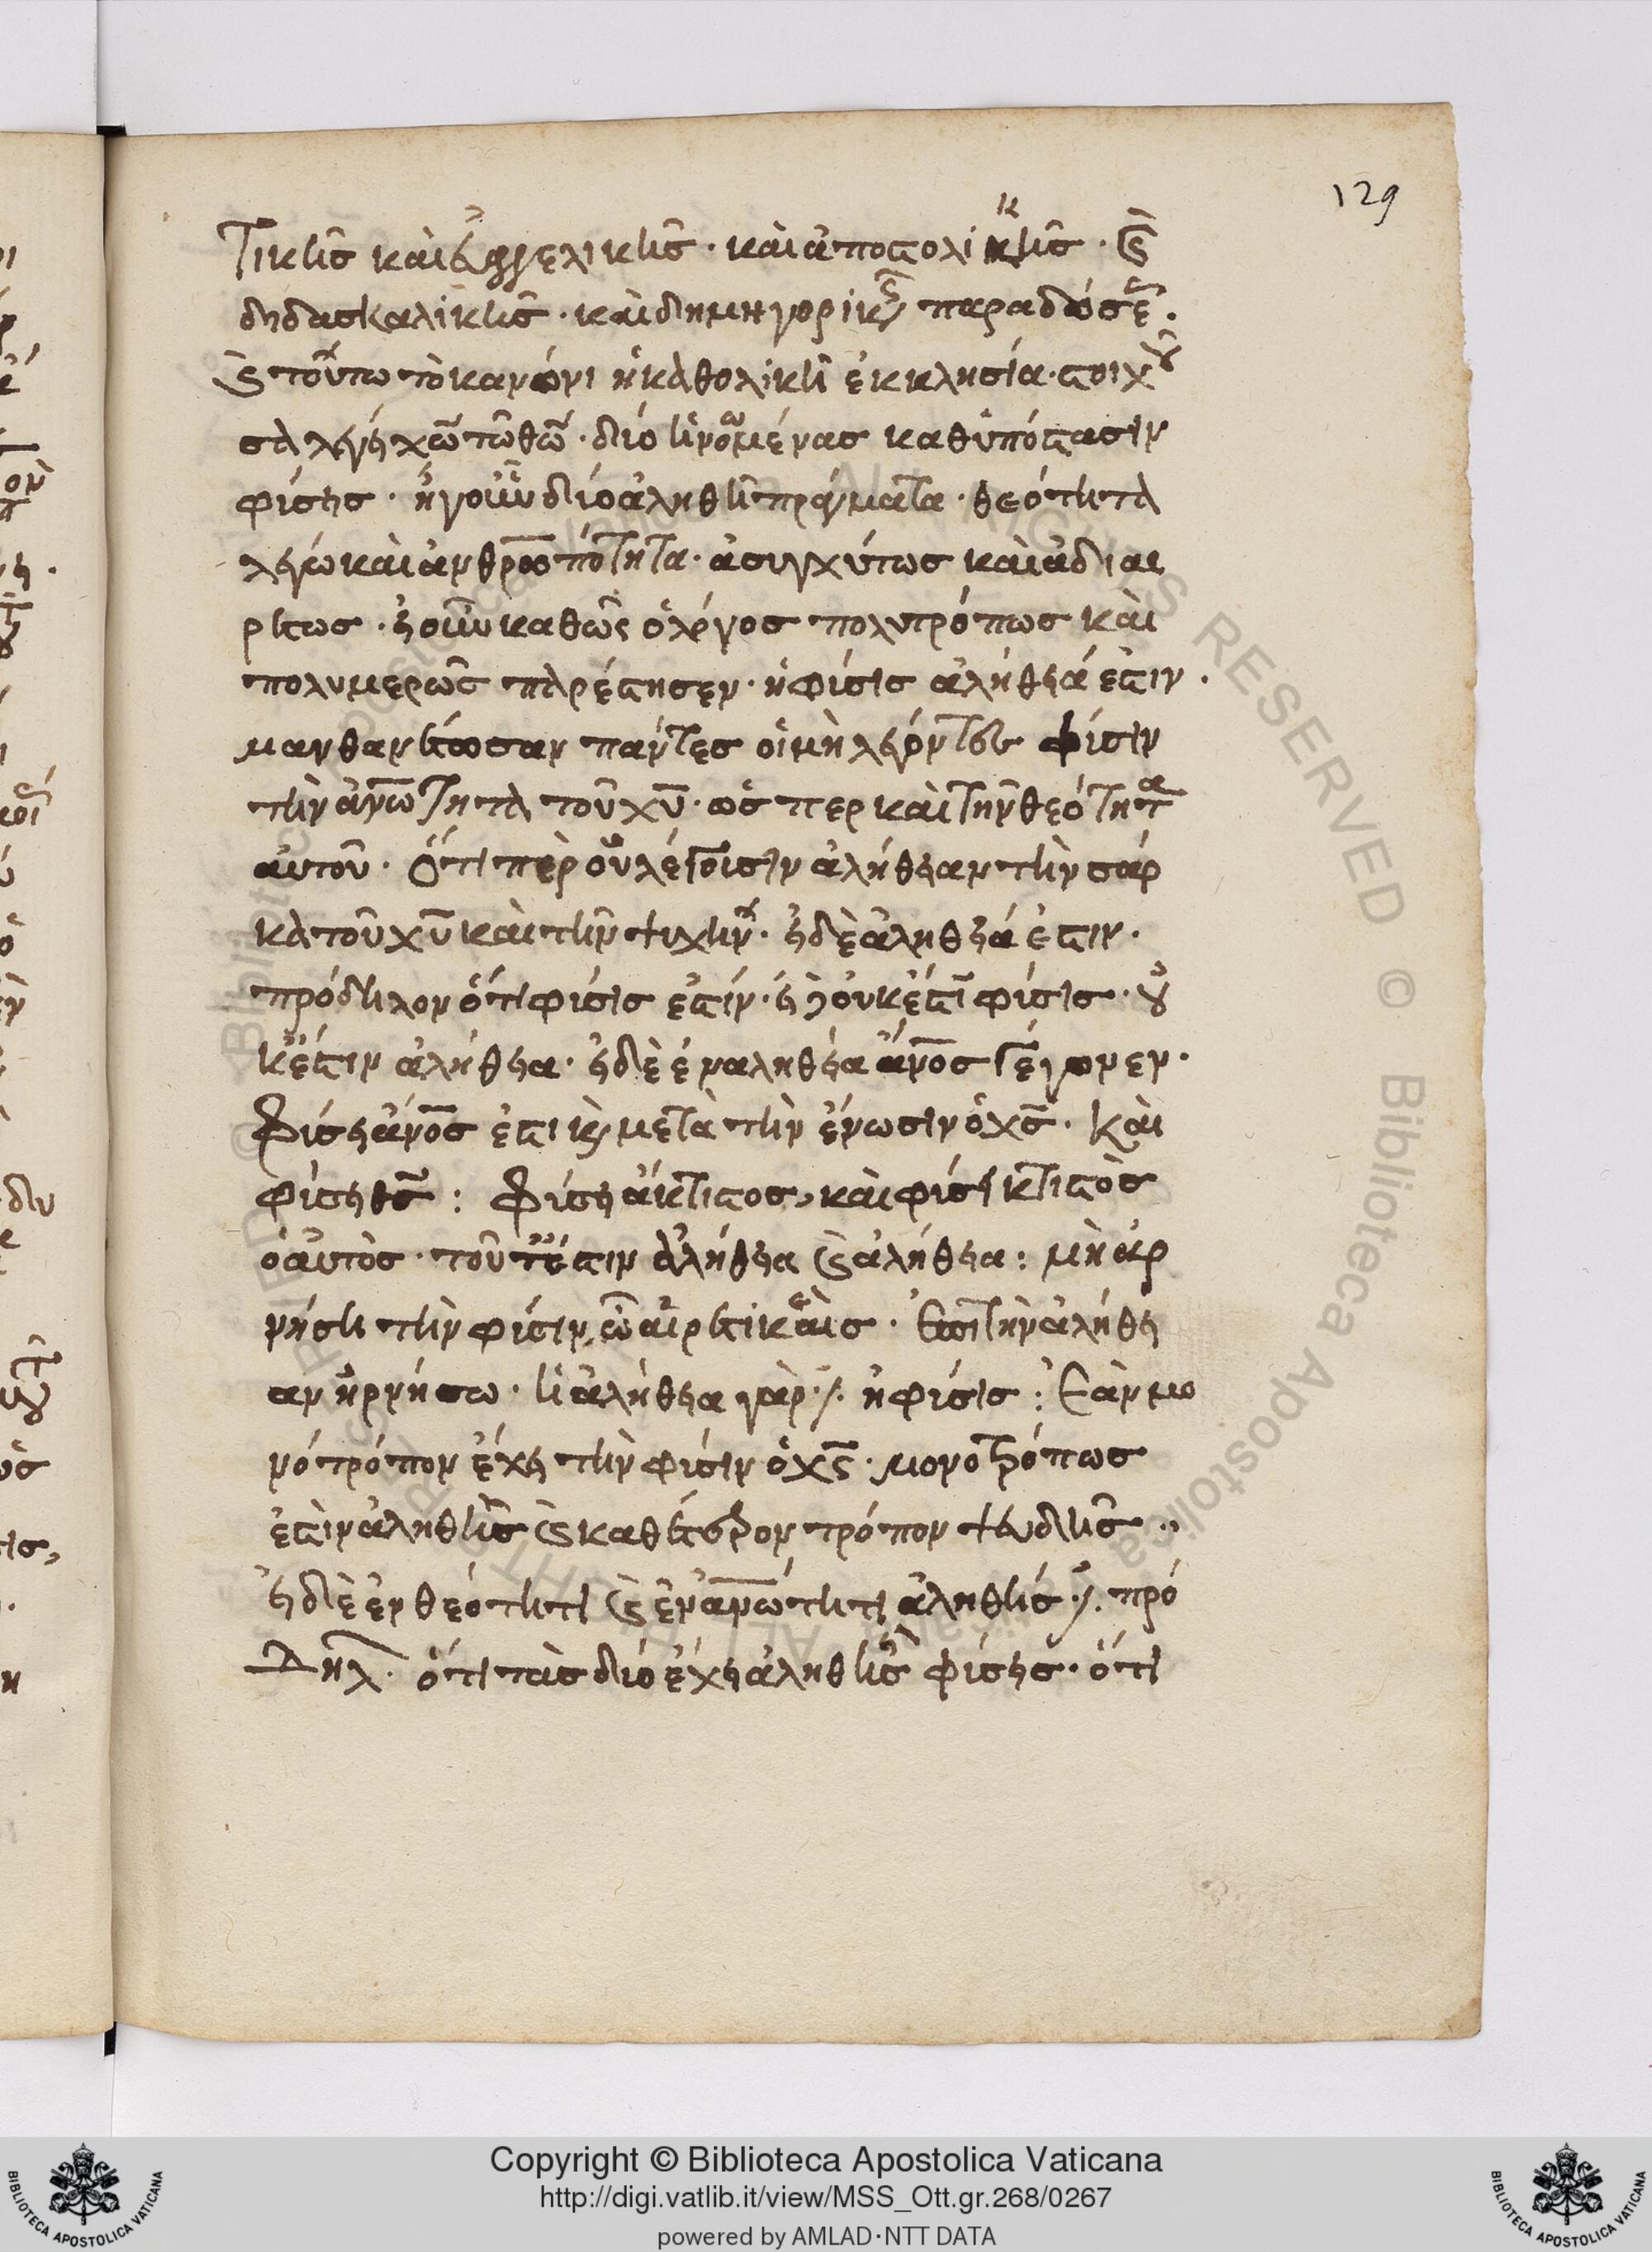 129
τικῆς καὶ εὐαγγελικῆς · καὶ ἀποστολικῆς · καὶ
δηδασκαλικῆς · καὶ δημηγορικῆς παραδόσε ·
καὶ τούτω τὸ κανόνι ἡ καθολικὴ ἐκκλησία · στοιχοῦ
σα λέγη χῶ τῶ θῶ · δίο ἡνομένας καθ ὑπόστασιν
φίσης · ἤγουν δίο ἀληθῆ πράγματα · θεότητα
λέγω καὶ ἀνθροπότητα · ἀσυγχύτως καὶ ἀδιαι
ρέτως · ἠ οὖν καθὼς ὁ λόγος πολυτρόπως καὶ
πολυμερῶς παρέστησεν · ἡ φίσις ἀλήθηά ἐστιν ·
μανθανέτωσαν πάντες οἱ μὴ λέγοντες φίσιν
τὴν ἀνωτητα τοῦ χυ · ὥσπερ καὶ τὴν θεότητα
αὐτοῦ · ὅτι περ οὐ λέγουσιν ἀλήθηαν τὴν σάρ
κα τοῦ χυ καὶ τὴν ψιχὴν · ἠ δὲ ἀληθηά ἐστιν ·
πρόδηλον ὅτι φίσις ἐστίν · ἠ γὰρ οὐκ ἔστι φίσις · οὐ
κ ἔστιν ἀλήθηα · ἠ δὲ ἐν ἀληθήα ἄνος γέγωνεν ·
φίση ἄνος ἐστι καὶ μετὰ τὴν ἕνωσιν ὁ χς · καὶ
φίση θς : φίση ἄκτιστος, καὶ φίση κτιστὸς
ὁ αὐτὸς · τοῦτ ἔστιν ἀλήθηα καὶ ἀλήθηα : μὴ ἀρ
νήση τὴν φίσιν, ὦ αἱρετικὲ · ἐπὶ τὴν ἀλήθη
αν ἠρνήσω · ἡ ἀλήθηα γὰρ ἐστὶν ἡ φίσις : ἐὰν μο
νότροπον ἔχη τὴν φίσιν ὁ χς · μονοτρόπως
ἐστὶν ἀληθὴς καὶ καθ ἕτερον τρόπον ψευδὴς ·
ἠ δὲ ἐν θεότητι καὶ ἐν ἀνωτητι ἀληθής ἐστι · πρό
δηλ · ὅτι τὰς δίο ἔχη ἀληθῆς φίσης · ὅτι
Copyright © Biblioteca Apostolica Vaticana
http://digi.vatlib.it/view/MSS_Ott.gr.268/0267
powered by AMLAD·NTT DATA
BIBLIOTECA APOSTOLICA VATICANA
BIBLIOTECA APOSTOLICA VATICANA